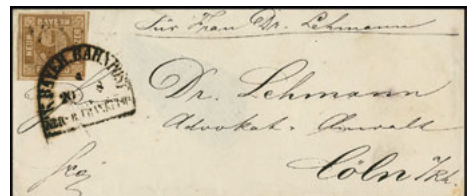 BAYERN
K. BAYER. BAHNPOST
20
Für Frau Dr. Lehmann
Dr. Lehmann
Advokat-Anwalt
Cöln a/Rh.
frei